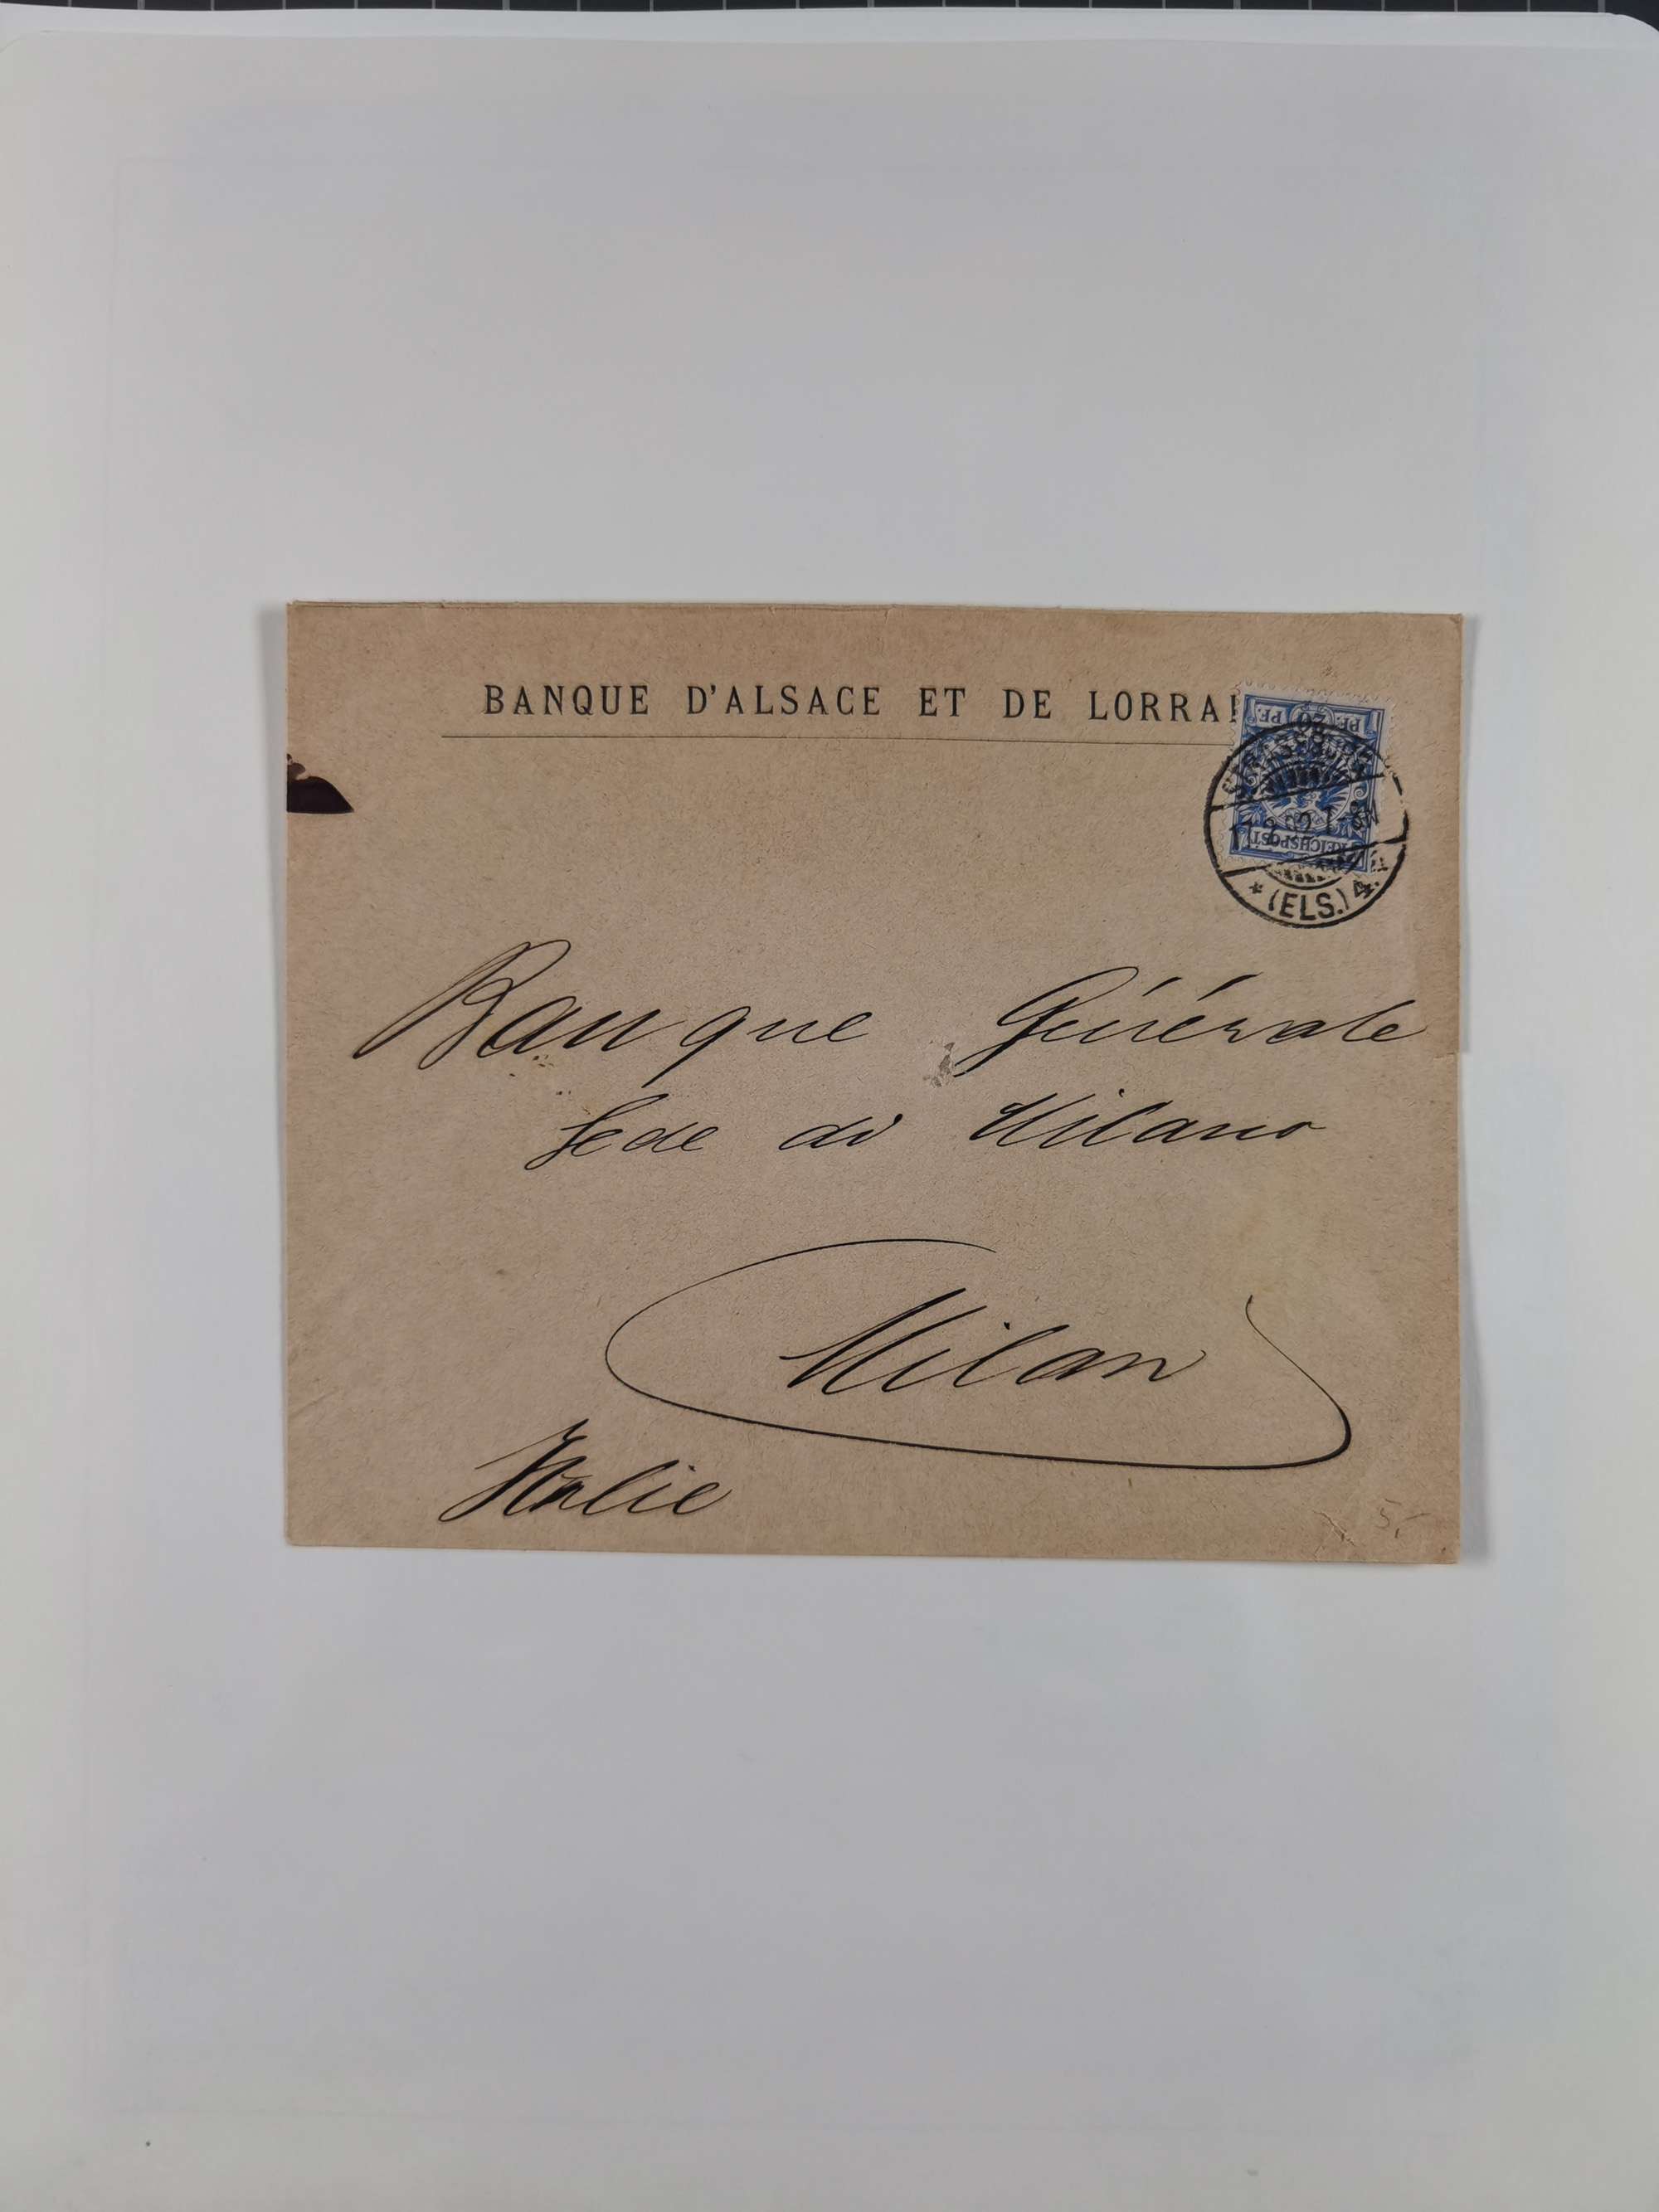 BANQUE D'ALSACE ET DE LORRAI
PF. 20 PF.
REICHSPOST
STRASSBURG
* (ELS.) 4.
Banque Générale
Sede di Milano
Milan
Italie
5,-